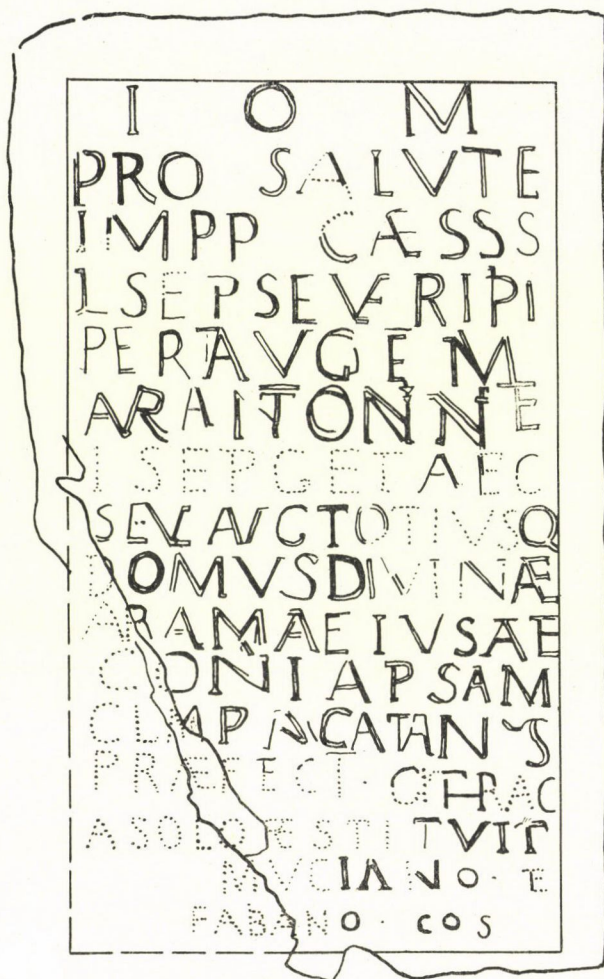 I O M
PRO SALVTE
IMPP CÆSSS
L SEP SEVERI PI
PERT AVG ET M
ARA NTONINE
L SEP GETAE C
SEV AVG TOTIVSQ
DOMVS DIVINÆ
ARAM AEIVSAE
C ONI A P SAM
CL AP CATANVS
PRÆFECT · C THRAC
A SOLO RESTITVIT
MVCIANO · E
FABANO · COS